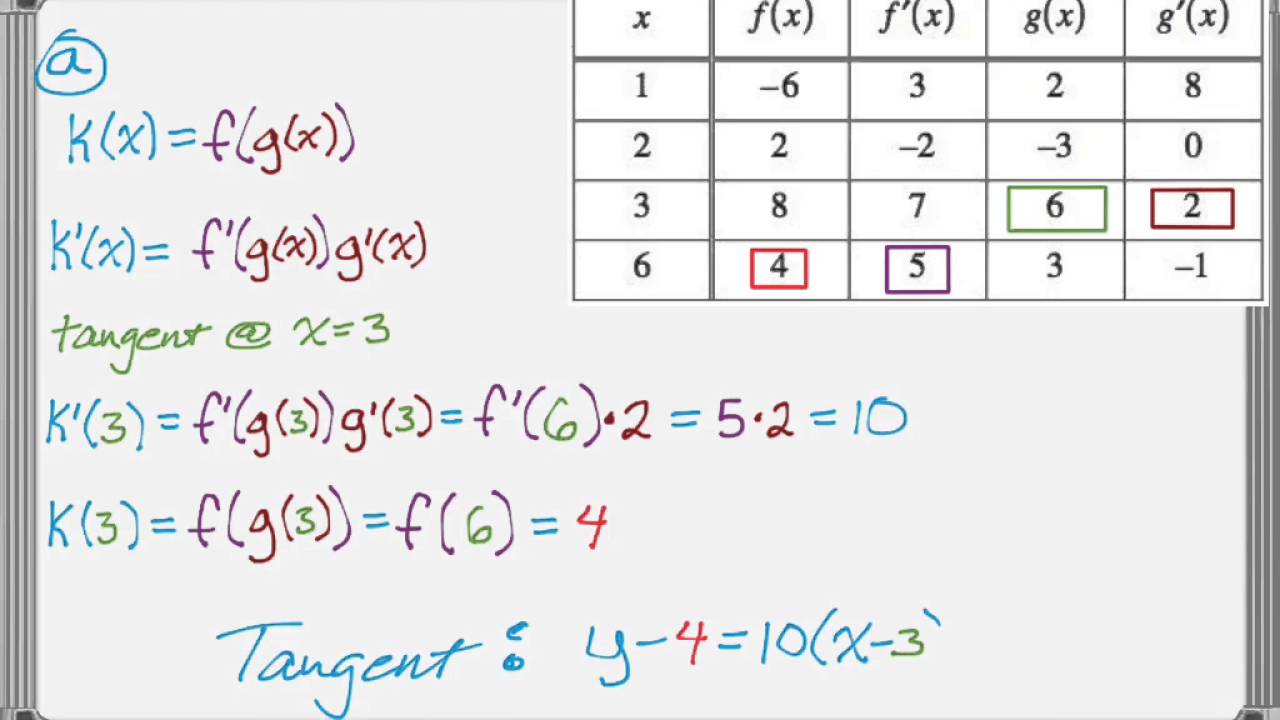 a
x f(x) f′(x) g(x) g′(x)
1 –6 3 2 8
2 2 –2 –3 0
3 8 7 6 2
6 4 5 3 –1
k(x) = f(g(x))
k'(x) = f'(g(x))g'(x)
tangent @ x=3
k'(3) = f'(g(3))g'(3) = f'(6)•2 = 5•2 = 10
k(3) = f(g(3)) = f(6) = 4
Tangent : y-4=10(x-3)